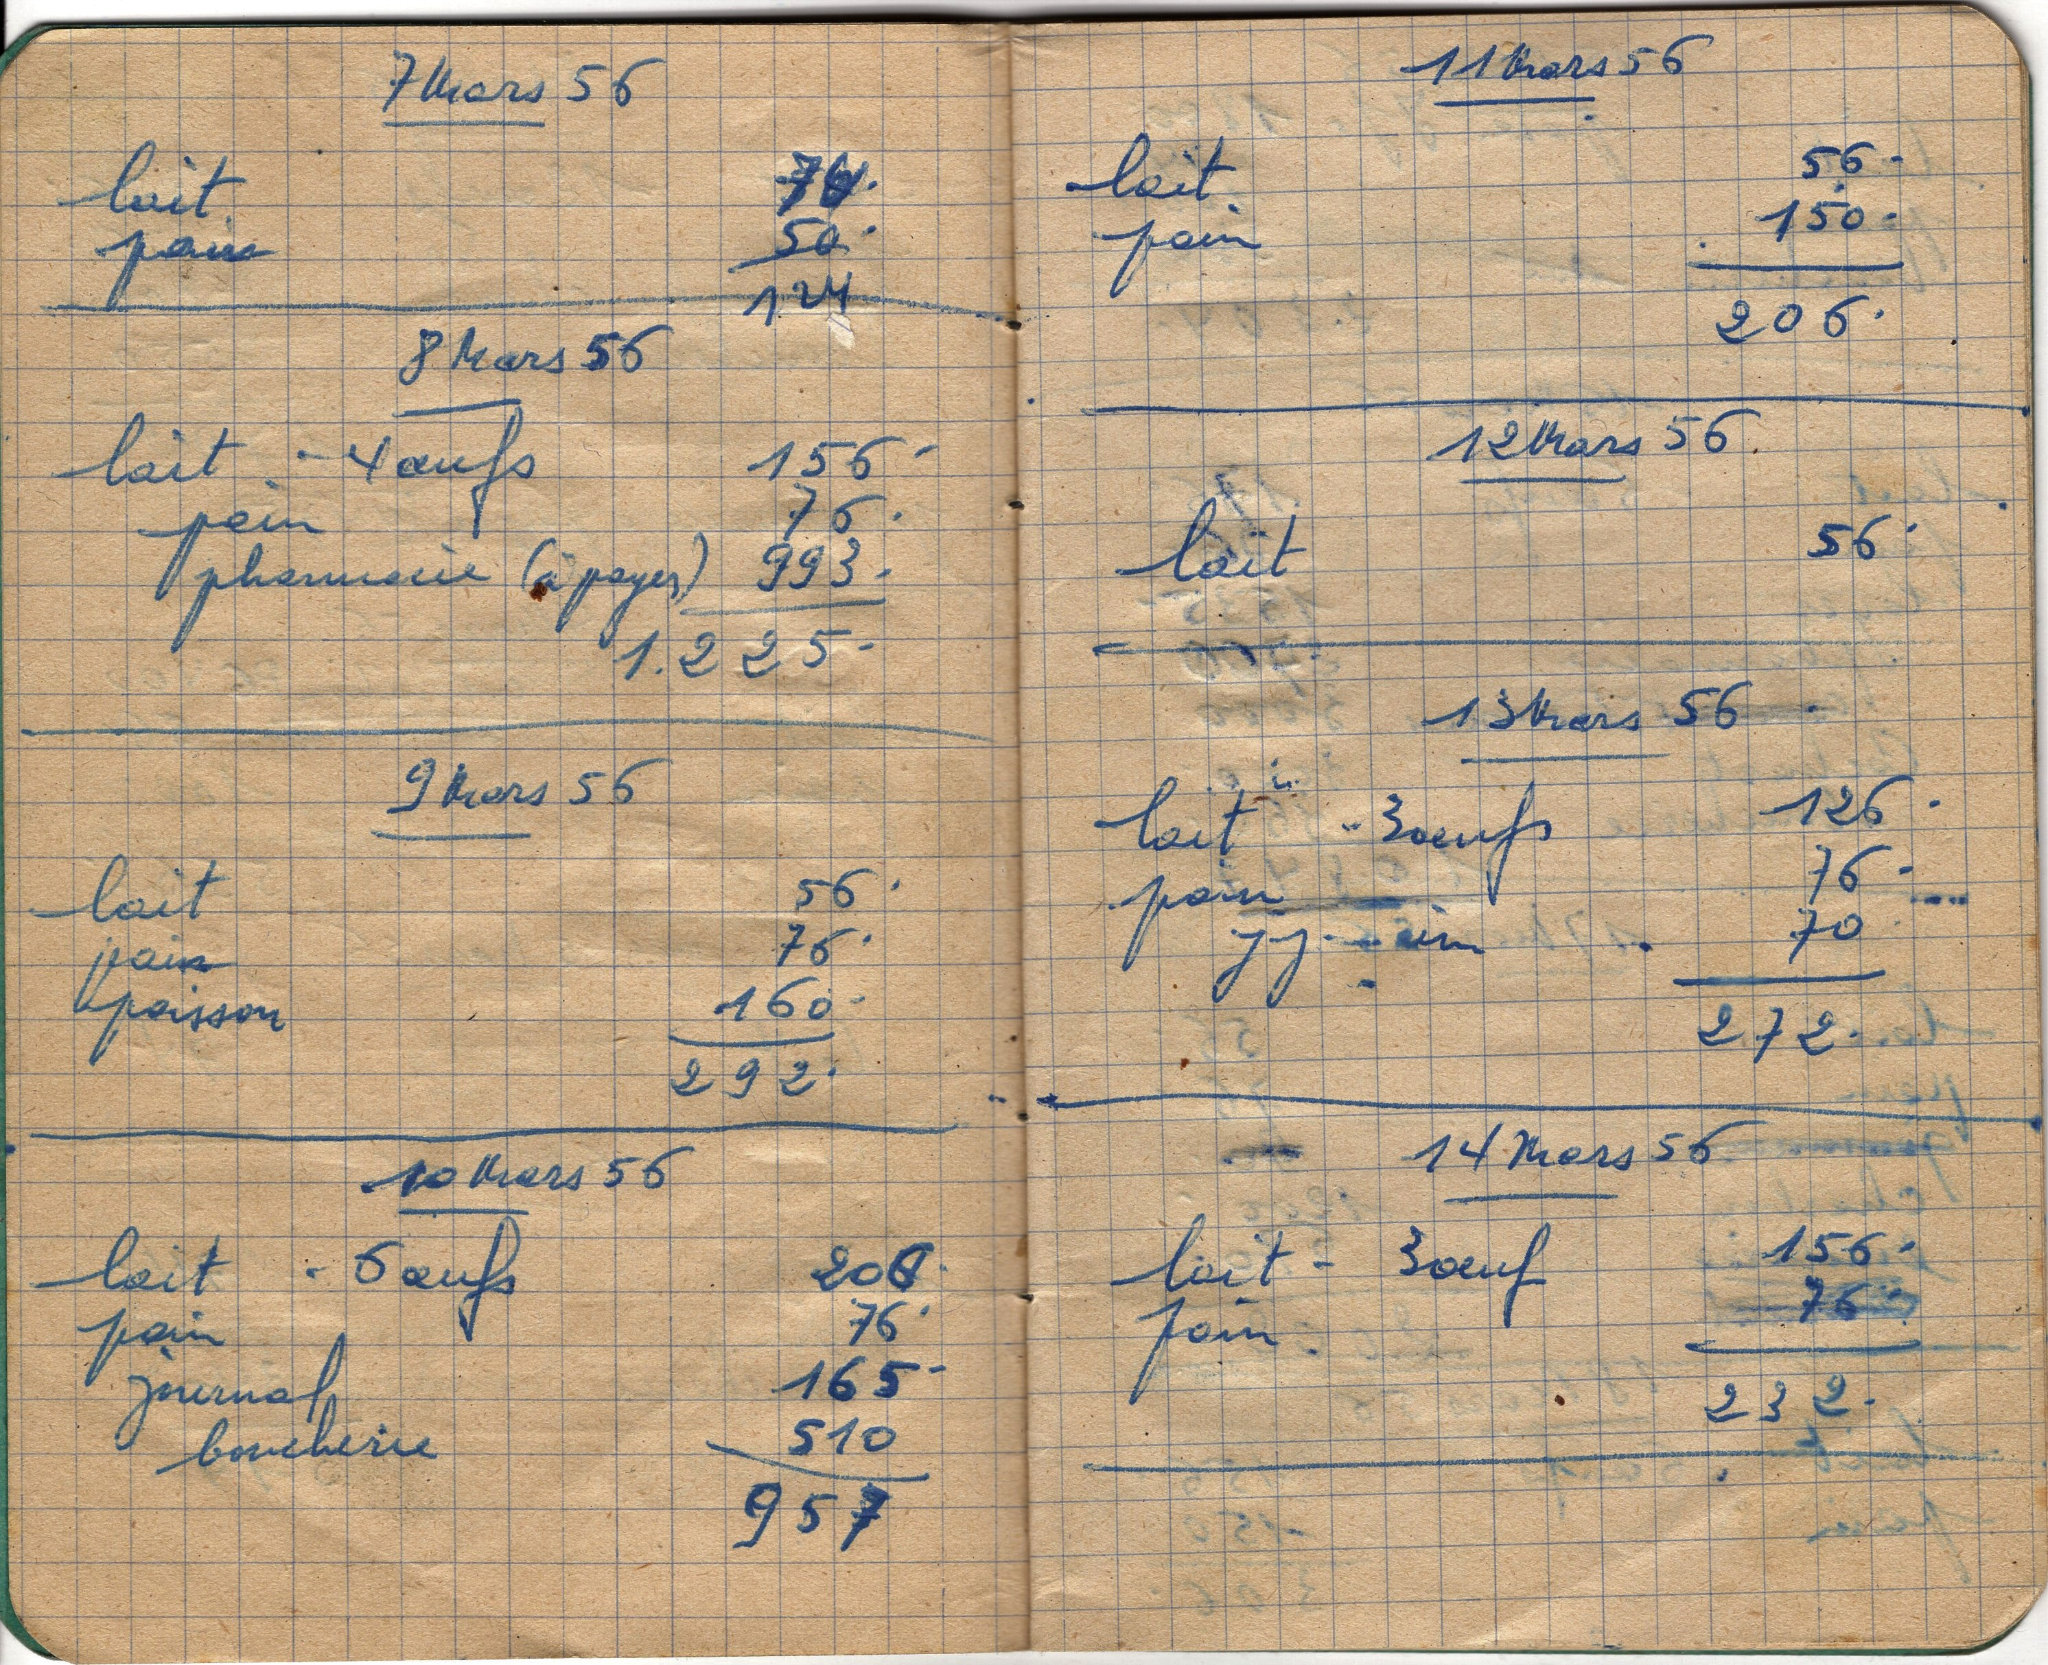 7 Mars 56
lait 74.
pain 50.
124
8 Mars 56
lait - 4 œufs 156-
pain 76.
pharmacie (à payer) 993-
1.225-
9 Mars 56
lait 56.
pain 76.
poisson 160-
292.
10 Mars 56
lait - 6 œufs 206.
pain 76.
journal 165-
boucherie 510
957
11 Mars 56
lait 56-
pain 150.
206.
12 Mars 56.
lait 56.
13 Mars 56
lait - 3 œufs 126.
pain 76-
70.
272.
14 Mars 56
lait - 3 œuf 156.
pain 76.
232.